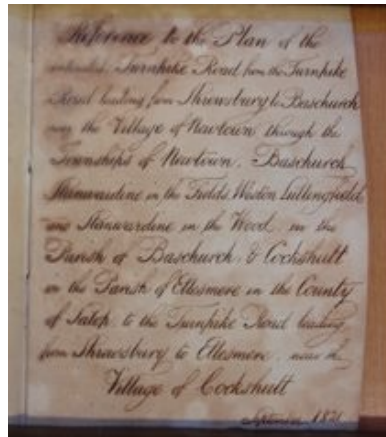 Reference to the Plan of the
intended Turnpike Road from the Turnpike
Road leading from Shrewsbury to Baschurch
near the Village of Newtown through the
Townships of Newtown, Baschurch,
Stanwardine in the Fields Weston Lullingfield
and Stanwardine in the Wood, in the
Parish of Baschurch, & Cockshutt
in the Parish of Ellesmere in the County
of Salop, to the Turnpike Road leading
from Shrewsbury to Ellesmere, near the
Village of Cockshutt
September 1821